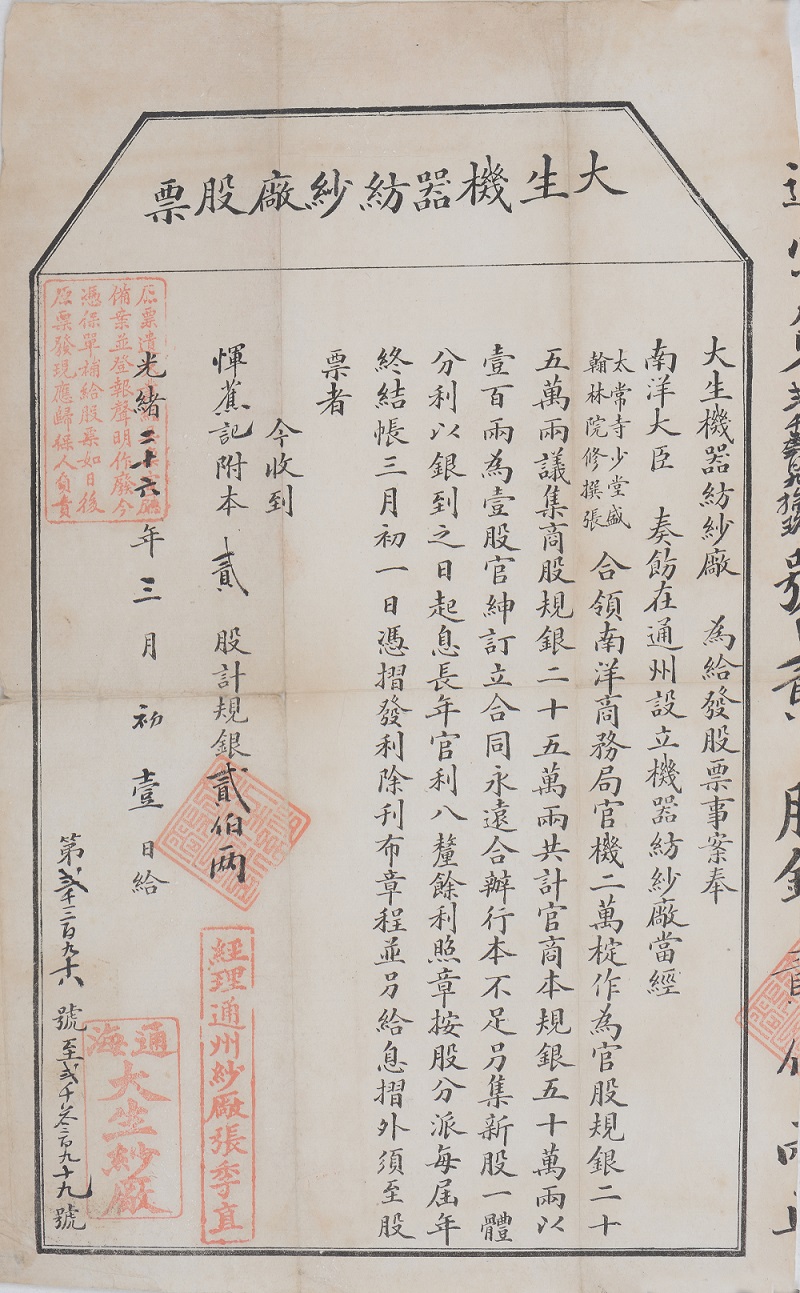 大生機器紡紗廠股票
大生機器紡紗廠 為給發股票事案奉
南洋大臣 奏飭在通州設立機器紡紗廠當經
太常寺少堂盛
翰林院修撰張
合領南洋商務局官機二萬棱作為官股規銀二十
五萬兩議集商股規銀二十五萬兩共計官商本規銀五十萬兩以
壹百兩為壹股官紳訂立合同永遠合辦行本不足另集新股一體
分利以銀到之日起息長年官利八釐餘利照章按股分派每屆年
終結帳三月初一日憑摺發利除刊布章程並另給息摺外須至股
票者
今收到
惲蕉記附本 貳 股計規銀貳伯兩
光緒二十六年三月初壹日給
第貳千三百九十八號至貳千叁百九十九號
原票遺
備案並登報聲明作廢今
憑保單補給股票如日後
原票發現應歸保人負責
經理通州紗廠張季直
通海
大生紗廠
號 股